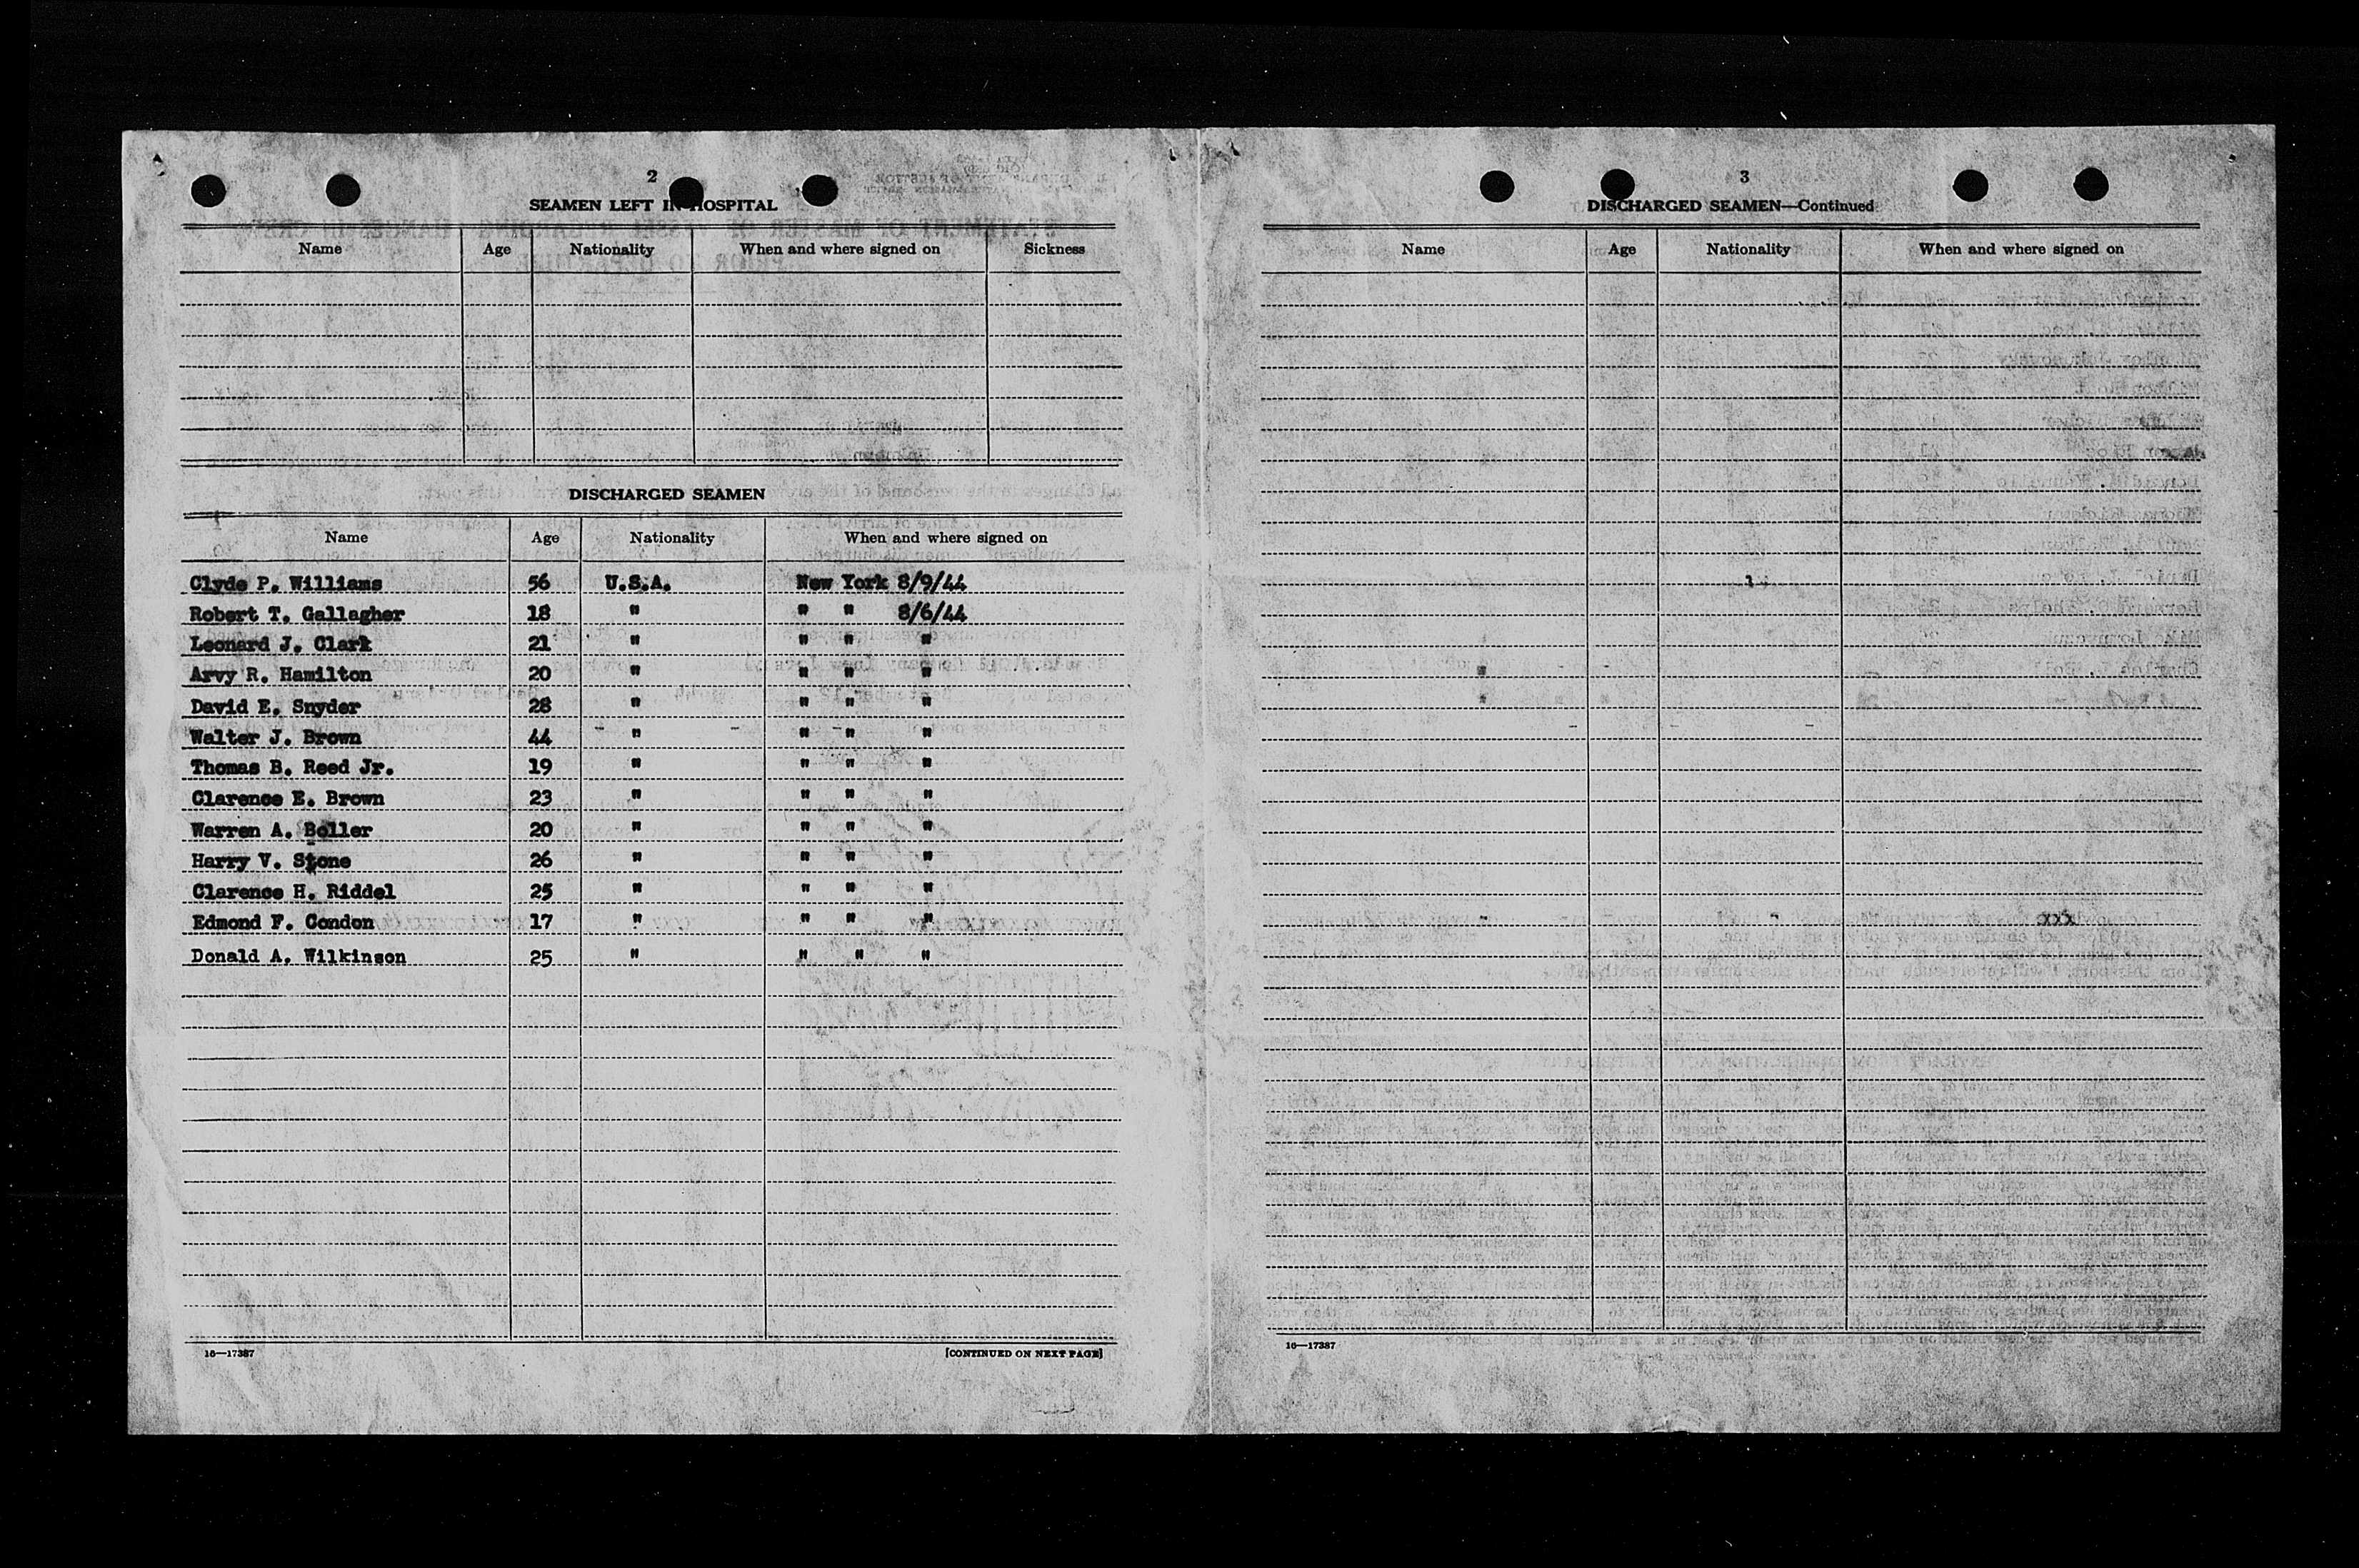 2
SEAMEN LEFT IN HOSPITAL
Name Age Nationality When and where signed on Sickness
DISCHARGED SEAMEN
Name Age Nationality When and where signed on
Clyde P. Williams 56 U.S.A. New York 8/9/44
Robert T. Gallagher 18 " " " 8/6/44
Leonard J. Clark 21 " " " "
Arvy R. Hamilton 20 " " " "
David E. Snyder 28 " " " "
Walter J. Brown 44 " " " "
Thomas B. Reed Jr. 19 " " " "
Clarence E. Brown 23 " " " "
Warren A. Boller 20 " " " "
Harry V. Stone 26 " " " "
Clarence H. Riddel 25 " " " "
Edmond F. Condon 17 " " " "
Donald A. Wilkinson 25 " " " "
16—17387 [CONTINUED ON NEXT PAGE]
3
DISCHARGED SEAMEN—Continued
Name Age Nationality When and where signed on
xxx
16—17387